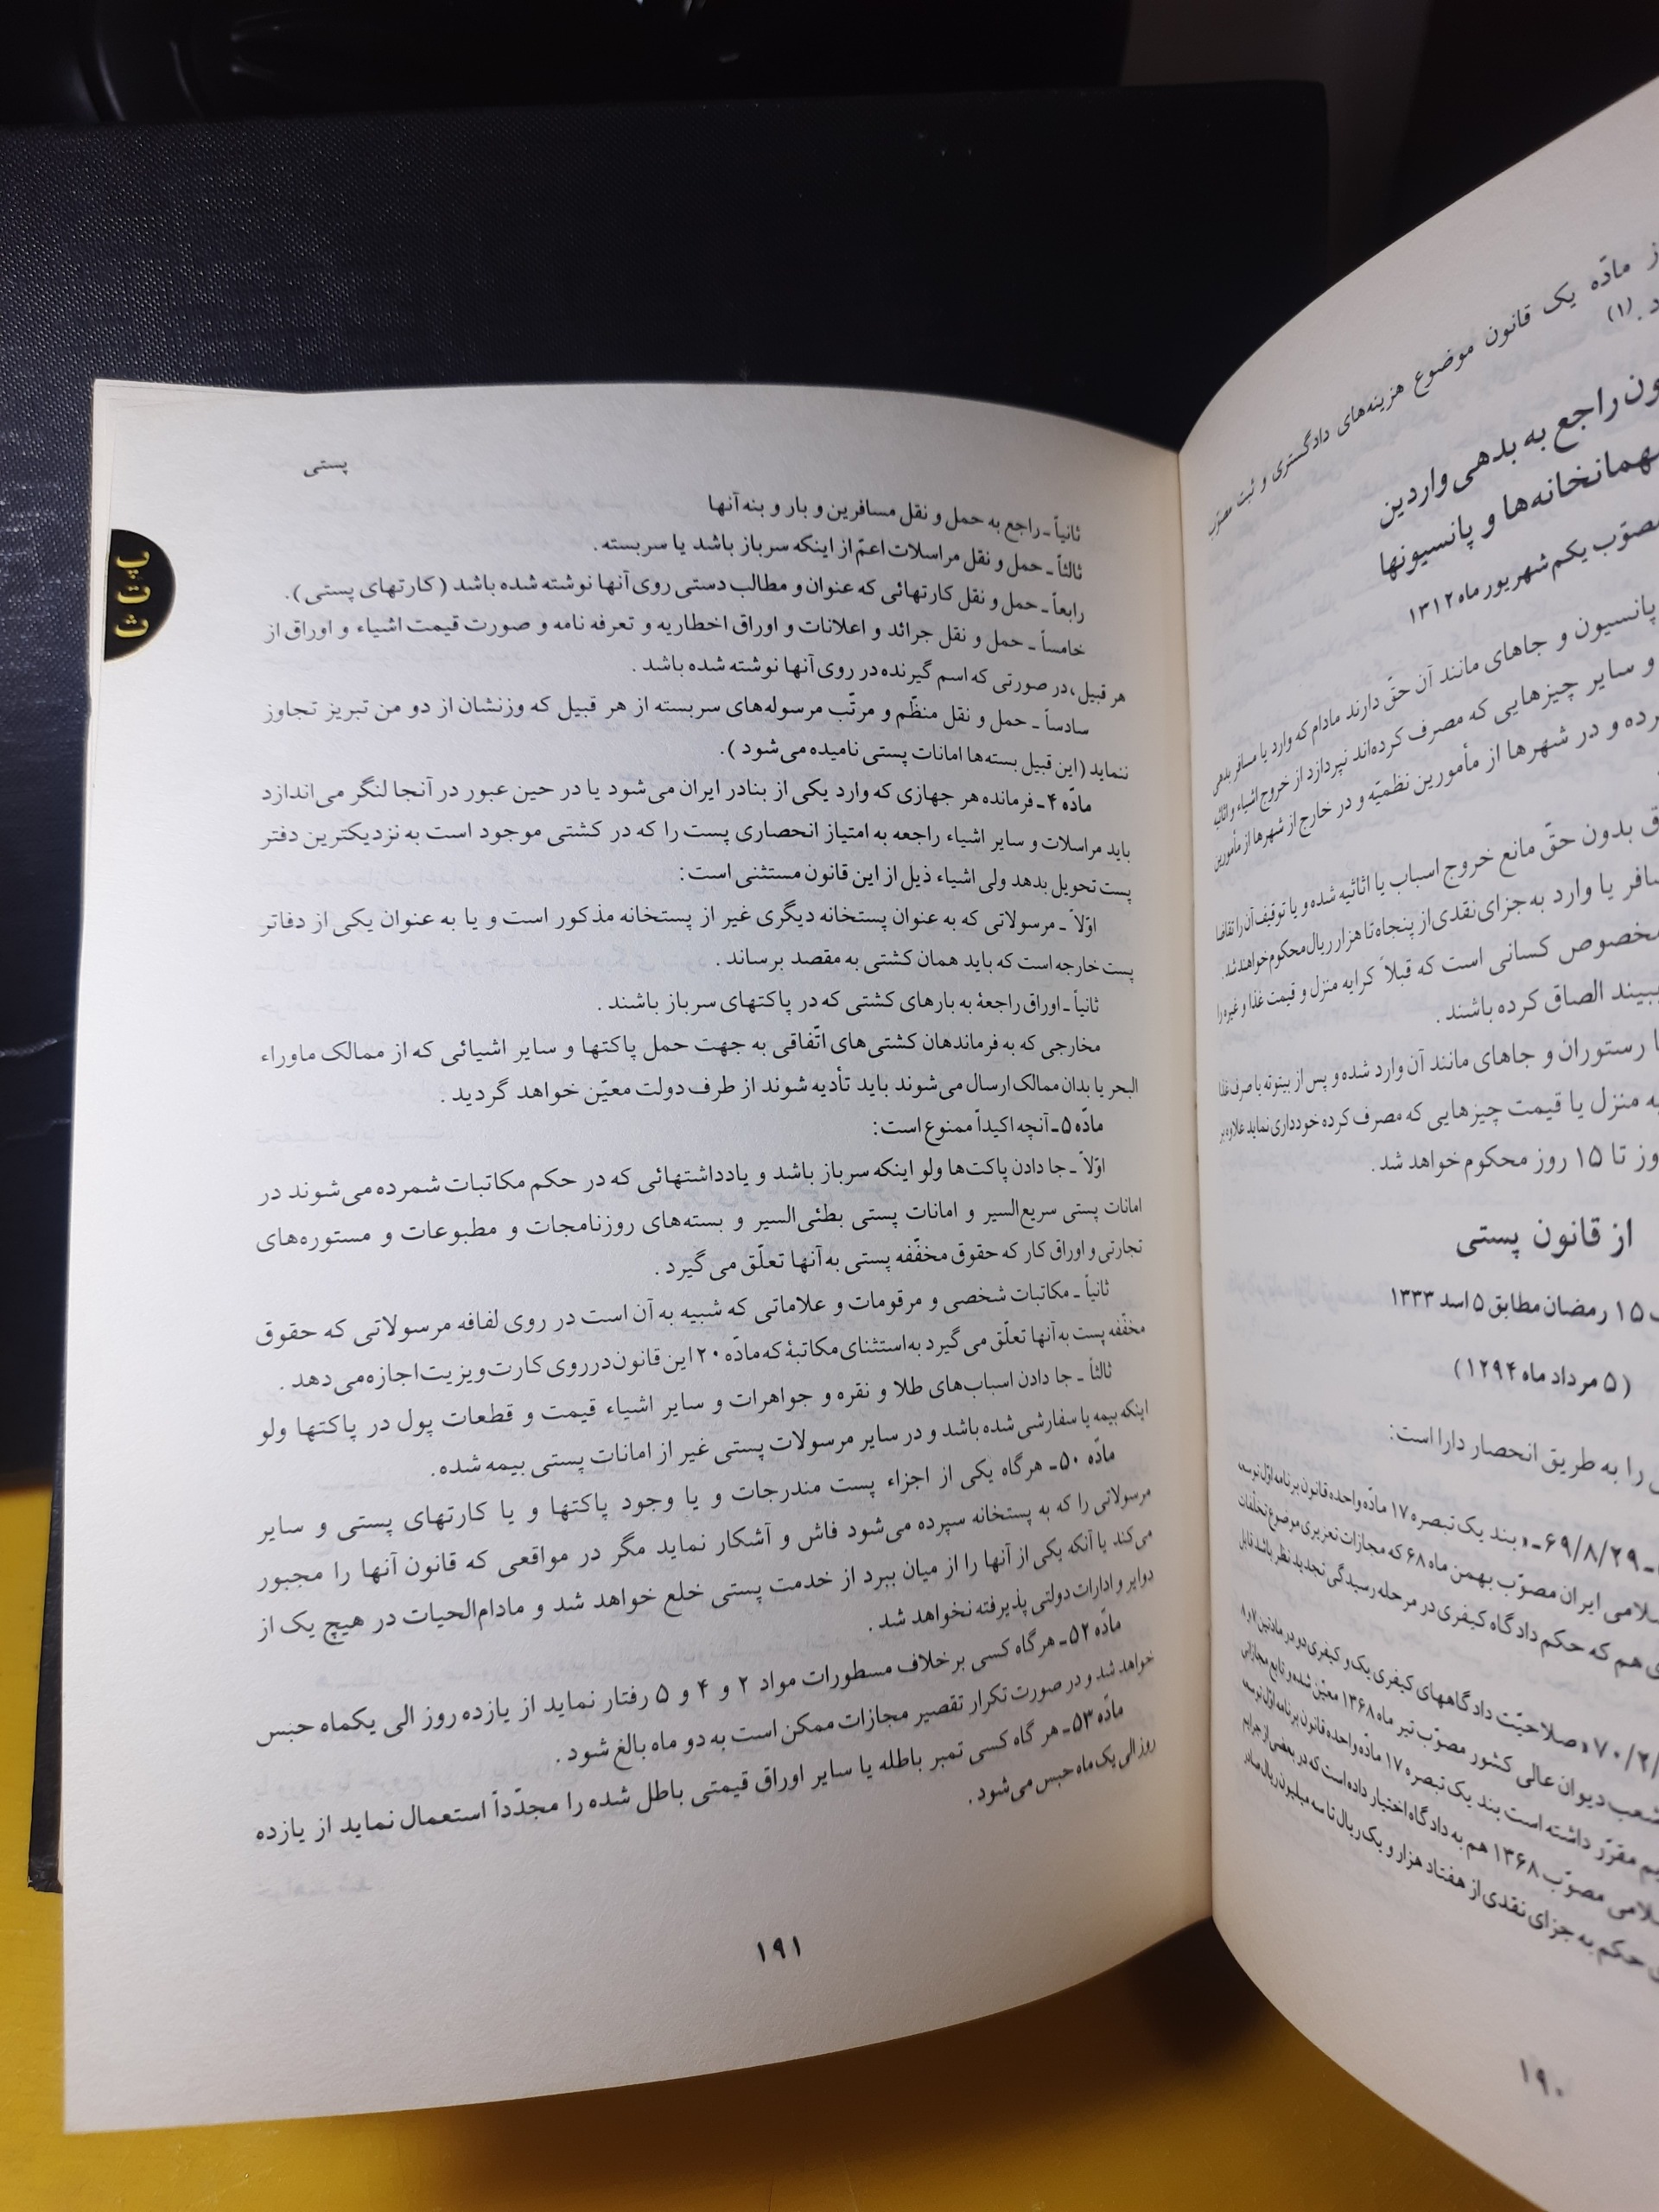 ز مادّه یک قانون موضوع هزینه‌های دادگستری و ثبت مصوّب
د.(۱)
ون راجع به بدهی واردین
همانخانه‌ها و پانسیونها
مصوّب یکم شهریور ماه ۱۳۱۲
پانسیون و جاهای مانند آن حقّ دارند مادام که وارد یا مسافر بدهی
و سایر چیزهایی که مصرف کرده‌اند نپردازد از خروج اشیاء و اثاثیه
رده و در شهرها از مأمورین نظمیّه و در خارج از شهرها از مأمورین
ق بدون حقّ مانع خروج اسباب یا اثاثیه شده و یا توقیف آن را تقاضا
سافر یا وارد به جزای نقدی از پنجاه تا هزار ریال محکوم خواهند شد.
مخصوص کسانی است که قبلاً کرایه منزل و قیمت غذا و غیره را
ببیند الصاق کرده باشند.
ا رستوران و جاهای مانند آن وارد شده و پس از بیتوته یا صرف غذا
یه منزل یا قیمت چیزهایی که مصرف کرده خودداری نماید علاوه بر
وز تا ۱۵ روز محکوم خواهد شد.
از قانون پستی
۱۵ رمضان مطابق ۵ اسد ۱۳۳۳
(۵ مرداد ماه ۱۲۹۴)
را به طریق انحصار دارا است:
ـ ۶۹/۸/۲۹ـ «بند یک تبصره ۱۷ مادّه واحده قانون برنامه اوّل توسعه
سلامی ایران مصوّب بهمن ماه ۶۸ که مجازات تعزیری موضوع تخلّفات
ی هم که حکم دادگاه کیفری در مرحله رسیدگی تجدید نظر باشد قابل
۷۰/۲/ «صلاحیّت دادگاههای کیفری یک و کیفری دو در مادتین ۷ و ۸
شعب دیوان عالی کشور مصوّب تیر ماه ۱۳۶۸ معیّن شده و تابع مجازاتی
یم مقرّر داشته است بند یک تبصره ۱۷ مادّه واحده قانون برنامه اوّل توسعه
سلامی مصوّب ۱۳۶۸ هم به دادگاه اختیار داده است که در بعضی از جرایم
ی حکم به جزای نقدی از هفتاد هزار و یک ریال تا سه میلیون ریال صادر
۱۹۰
پستی
پ ت ث
ثانیاً ـ راجع به حمل و نقل مسافرین و بار و بنه آنها
ثالثاً ـ حمل و نقل مراسلات اعمّ از اینکه سرباز باشد یا سربسته.
رابعاً ـ حمل و نقل کارتهائی که عنوان و مطالب دستی روی آنها نوشته شده باشد (کارتهای پستی).
خامساً ـ حمل و نقل جرائد و اعلانات و اوراق اخطاریه و تعرفه نامه و صورت قیمت اشیاء و اوراق از
هر قبیل، در صورتی که اسم گیرنده در روی آنها نوشته شده باشد.
سادساً ـ حمل و نقل منظّم و مرتّب مرسوله‌های سربسته از هر قبیل که وزنشان از دو من تبریز تجاوز
ننماید (این قبیل بسته‌ها امانات پستی نامیده می‌شود).
مادّه ۴ـ فرمانده هر جهازی که وارد یکی از بنادر ایران می‌شود یا در حین عبور در آنجا لنگر می‌اندازد
باید مراسلات و سایر اشیاء راجعه به امتیاز انحصاری پست را که در کشتی موجود است به نزدیکترین دفتر
پست تحویل بدهد ولی اشیاء ذیل از این قانون مستثنی است:
اوّلاً ـ مرسولاتی که به عنوان پستخانه دیگری غیر از پستخانه مذکور است و یا به عنوان یکی از دفاتر
پست خارجه است که باید همان کشتی به مقصد برساند.
ثانیاً ـ اوراق راجعهٔ به بارهای کشتی که در پاکتهای سرباز باشند.
مخارجی که به فرماندهان کشتی‌های اتّفاقی به جهت حمل پاکتها و سایر اشیائی که از ممالک ماوراء
البحر یا بدان ممالک ارسال می‌شوند باید تأدیه شوند از طرف دولت معیّن خواهد گردید.
مادّه ۵ـ آنچه اکیداً ممنوع است:
اوّلاً ـ جا دادن پاکت‌ها ولو اینکه سرباز باشد و یادداشتهائی که در حکم مکاتبات شمرده می‌شوند در
امانات پستی سریع‌السیر و امانات پستی بطئی‌السیر و بسته‌های روزنامجات و مطبوعات و مستوره‌های
تجارتی و اوراق کار که حقوق مخفّفه پستی به آنها تعلّق می‌گیرد.
ثانیاً ـ مکاتبات شخصی و مرقومات و علاماتی که شبیه به آن است در روی لفافه مرسولاتی که حقوق
مخفّفه پست به آنها تعلّق می‌گیرد به‌استثنای مکاتبهٔ که مادّه ۲۰ این قانون در روی کارت ویزیت اجازه می‌دهد.
ثالثاً ـ جا دادن اسباب‌های طلا و نقره و جواهرات و سایر اشیاء قیمت و قطعات پول در پاکتها ولو
اینکه بیمه یا سفارشی شده باشد و در سایر مرسولات پستی غیر از امانات پستی بیمه شده.
مادّه ۵۰ـ هرگاه یکی از اجزاء پست مندرجات و یا وجود پاکتها و یا کارتهای پستی و سایر
مرسولاتی را که به پستخانه سپرده می‌شود فاش و آشکار نماید مگر در مواقعی که قانون آنها را مجبور
می‌کند یا آنکه یکی از آنها را از میان ببرد از خدمت پستی خلع خواهد شد و مادام‌الحیات در هیچ یک از
دوایر و ادارات دولتی پذیرفته نخواهد شد.
مادّه ۵۲ـ هرگاه کسی برخلاف مسطورات مواد ۲ و ۴ و ۵ رفتار نماید از یازده روز الی یکماه حبس
خواهد شد و در صورت تکرار تقصیر مجازات ممکن است به دو ماه بالغ شود.
مادّه ۵۳ـ هر گاه کسی تمبر باطله یا سایر اوراق قیمتی باطل شده را مجدّداً استعمال نماید از یازده
روز الی یک ماه حبس می‌شود.
۱۹۱